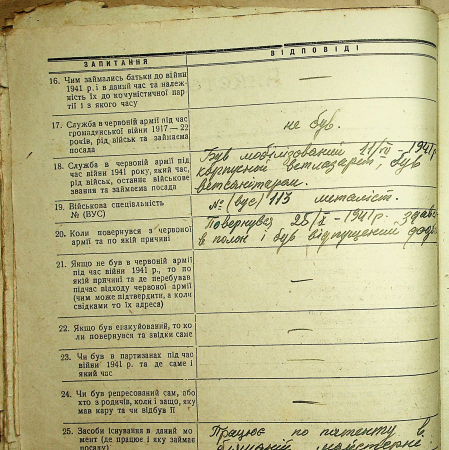 ЗАПИТАННЯ
ВІДПОВІДІ
16. Чим займались батьки до війни
1941 р. і в даний час та належ-
ність їх до комуністичної пар-
тії і з якого часу
—
17. Служба в червоній армії під час
громадянської війни 1917—22
років, рід військ та займаєма
посада
не був.
18. Служба в червоній армії під
час війни 1941 року, який час,
рід військ, останнє військове
звання та займаєма посада
Був мобілізований 11/VII – 1941 р.
ветлазарет, був
ветсанітаром.
19. Військова спеціальність
№ (ВУС)
№ (вус) 113 металіст.
20. Коли повернувся з червоної
армії та по якій причині
Повернувся 25/X – 1941 р.
в полон і був відпущений
21. Якщо не був в червоній армії
під час війни 1941 р., то по
якій причині та де перебував
підчас відходу червоної армії
(чим може підтвердити, а коли
свідками то їх адреса)
—
22. Якщо був евакуйований, то ко-
ли повернувся та звідки саме
—
23. Чи був в партизанах під час
війни 1941 р. та де саме і
який час
—
24. Чи був репресований сам, або
хто з родичів, коли і защо, яку
мав кару та чи відбув її
—
25. Засоби існування в даний мо-
мент (де працює і яку займає
посаду)
Працює по патенту в
майстерне